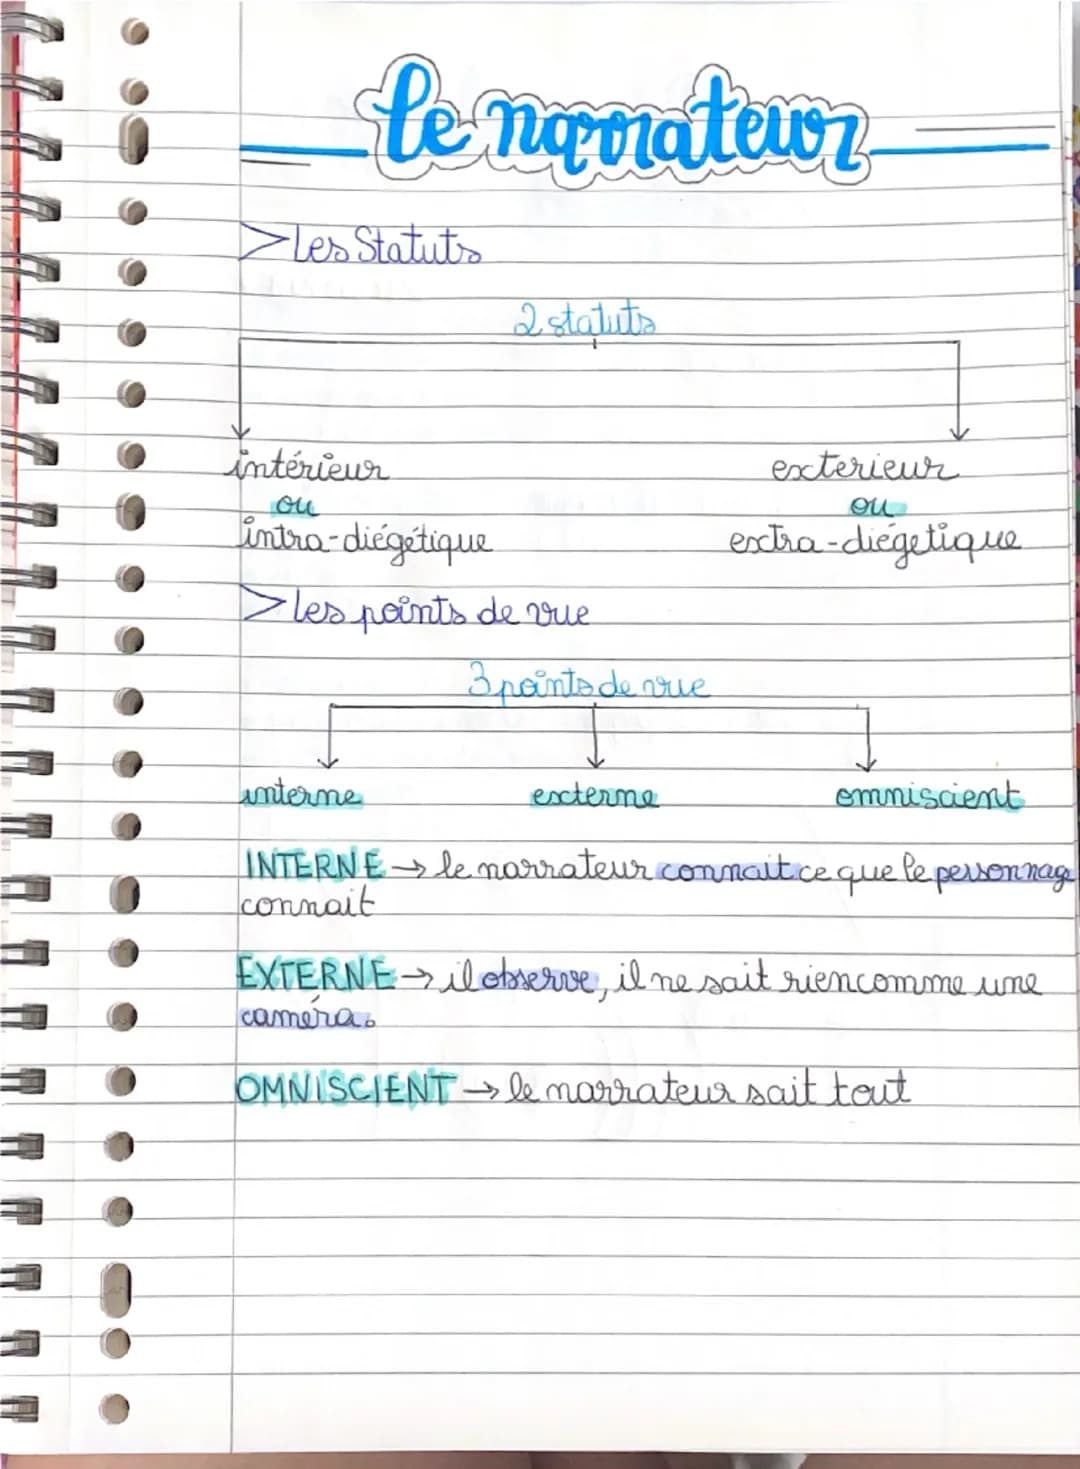 le narrateur
>Les Statuts
2 statuts
intérieur exterieur
ou ou
intra-diégétique extra-diégetique
>les points de vue
3 points de vue
interne externe omniscient
INTERNE → le narrateur connait ce que le personnag
connait
EXTERNE → il observe, il ne sait rien comme une
caméra.
OMNISCIENT → le narrateur sait tout